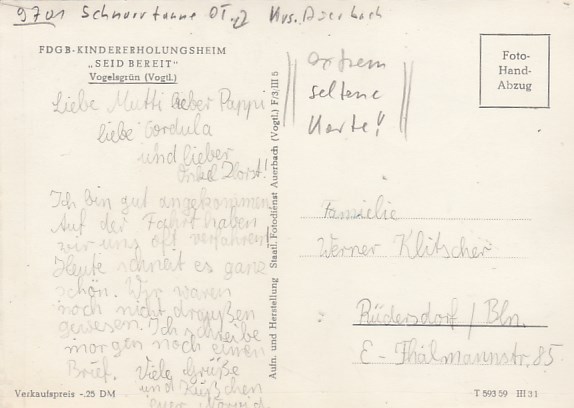 9701 Schnarrtanne OT. Krs. Auerbach
FDGB-KINDERERHOLUNGSHEIM
„SEID BEREIT"
Vogelsgrün (Vogtl.)
Liebe Mutti lieber Pappi
liebe Cordula
und lieber
Onkel Horst!
Ich bin gut angekommen
Auf der Fahrt haben
wir uns oft verfahren!
Heute schneit es ganz
schön. Wir waren
noch nicht draußen
gewesen. Ich schreibe
morgen noch einen
Brief. Viele Grüße
und Küßchen
euer
Verkaufspreis -.25 DM
Aufn. und Herstellung Staatl. Fotodienst Auerbach (Vogtl.) F/3/III 5
extrem
seltene
Karte!
Foto-
Hand-
Abzug
Familie
Werner Klitscher
Rüdersdorf / Bln.
E-Thälmannstr. 85
T 593 59 III 31